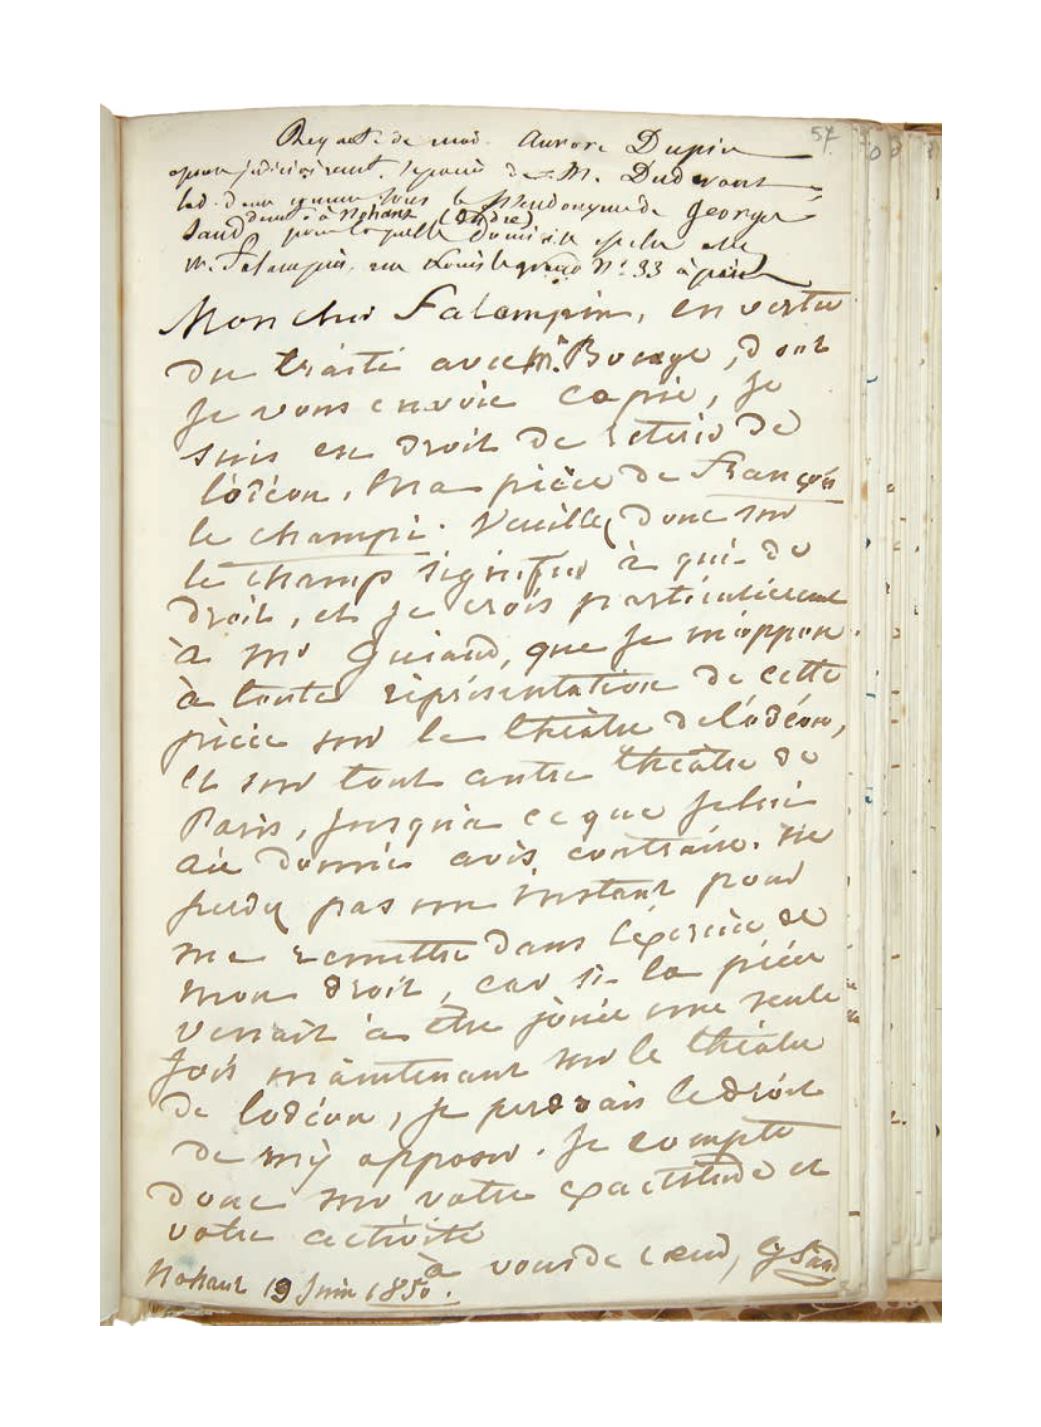 57
Requête de moi Aurore Dupin
épouse judiciairement séparée de M. Dudevant
lad. dame connue sous le pseudonyme de George
Sand demt. à Nohant (Indre)
pour laquelle domicile est élu chez
M. Falampin, rue Louis legrand N° 33 à paris
Mon cher Falampin, en vertu
du traité avec Mr. Bocage, dont
je vous envoie copie, je
suis en droit de retirer de
l'odéon, ma pièce de François
le champi. Veuillez donc sur
le champ signifier à qui de
droit, et je crois particulièrement
à Mr que je m'oppose
à toute réprésentation de cette
pièce sur le théâtre de l'odéon,
et sur tout autre théâtre de
Paris, jusqu'à ce que je lui
aie donné avis contraire. Ne
perdez pas un instant pour
me remettre dans l'éxercice de
mon droit, car si la pièce
venait à être jouée une seule
fois maintenant sur le théâtre
de lodéon, je perdrais le droit
de m'y opposer. Je compte
donc sur votre exactitude et
votre activité
à vous de cœur, G Sand
Nohant 19 Juin 1850.